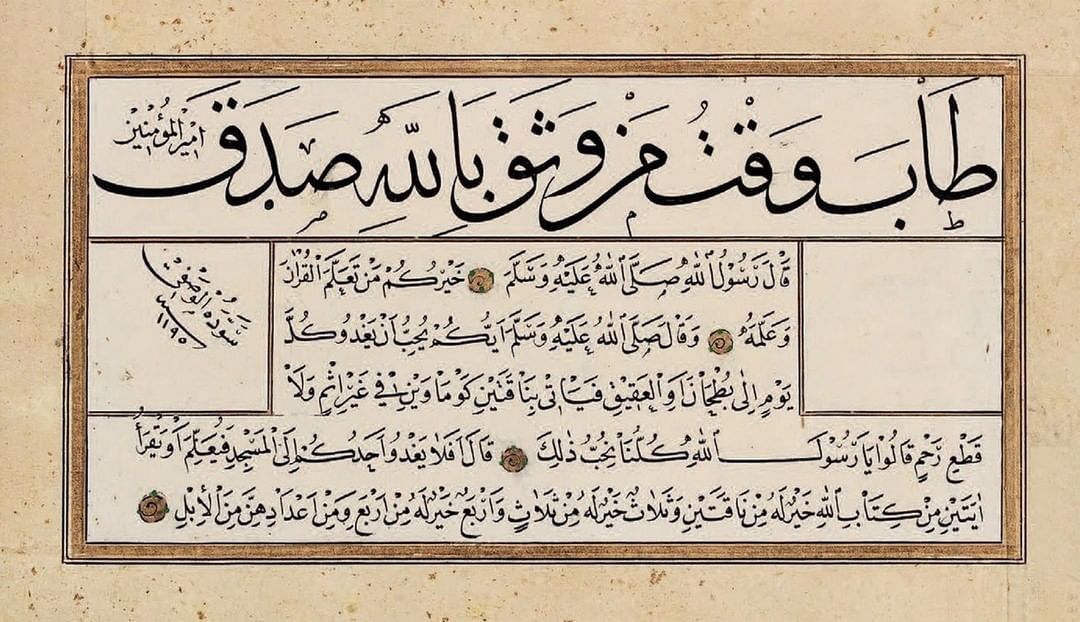 طَابَ وَقْتُ مَنْ وَثِقَ بِاللّٰهِ صَدَقَ
اَمِيرُ الْمُؤْمِنِينَ
قَالَ رَسُولُ اللّٰهِ صَلَّى اللّٰهُ عَلَيْهِ وَسَلَّمَ خَيْرُكُمْ مَنْ تَعَلَّمَ الْقُرْاٰنَ
وَعَلَّمَهُ وَقَالَ صَلَّى اللّٰهُ عَلَيْهِ وَسَلَّمَ اَيُّكُمْ يُحِبُّ اَنْ يَغْدُوَ كُلَّ
يَوْمٍ اِلٰى بُطْحَانَ اَوِ الْعَقِيقِ فَيَأْتِىَ بِنَاقَتَيْنِ كَوْمَاوَيْنِ فِى غَيْرِ اِثْمٍ وَلَا
قَطْعِ رَحِمٍ قَالُوا يَا رَسُولَ اللّٰهِ كُلُّنَا نُحِبُّ ذٰلِكَ قَالَ اَفَلَا يَغْدُو اَحَدُكُمْ اِلَى الْمَسْجِدِ فَيُعَلِّمَ اَوْ يَقْرَأَ
اٰيَتَيْنِ مِنْ كِتَابِ اللّٰهِ خَيْرٌ لَهُ مِنْ نَاقَتَيْنِ وَثَلَاثٌ خَيْرٌ لَهُ مِنْ ثَلَاثٍ وَاَرْبَعٌ خَيْرٌ لَهُ مِنْ اَرْبَعٍ وَمِنْ اَعْدَادِهِنَّ مِنَ الْاِبِلِ
سَوَّدَهُ الْوَصْفِى
سنه ١١٩٥